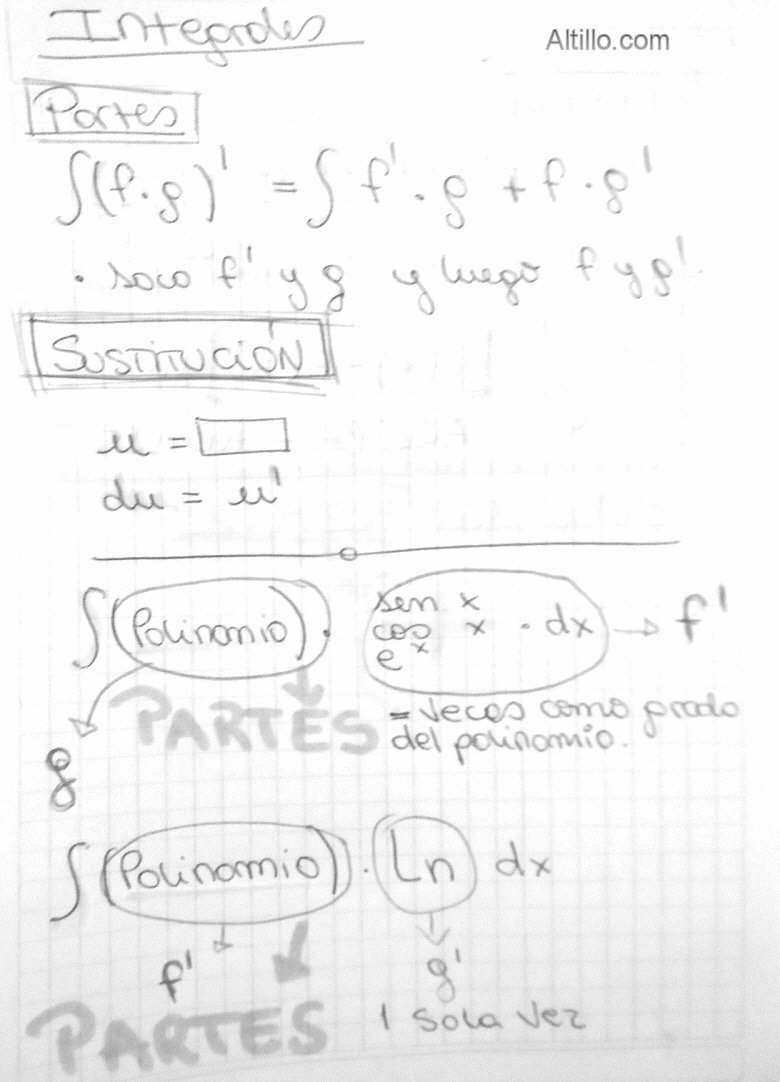 Integrales
Altillo.com
Partes
∫(f.g)' = ∫ f' . g + f . g'
. saco f' y g y luego f y g'.
SUSTITUCIÓN
u =
du = u'
∫(Polinomio).
sen x
cos x . dx → f'
e^x
PARTES
= veces como grado
del polinomio.
g
∫(Polinomio) . Ln dx
f'
g'
PARTES
1 sola vez